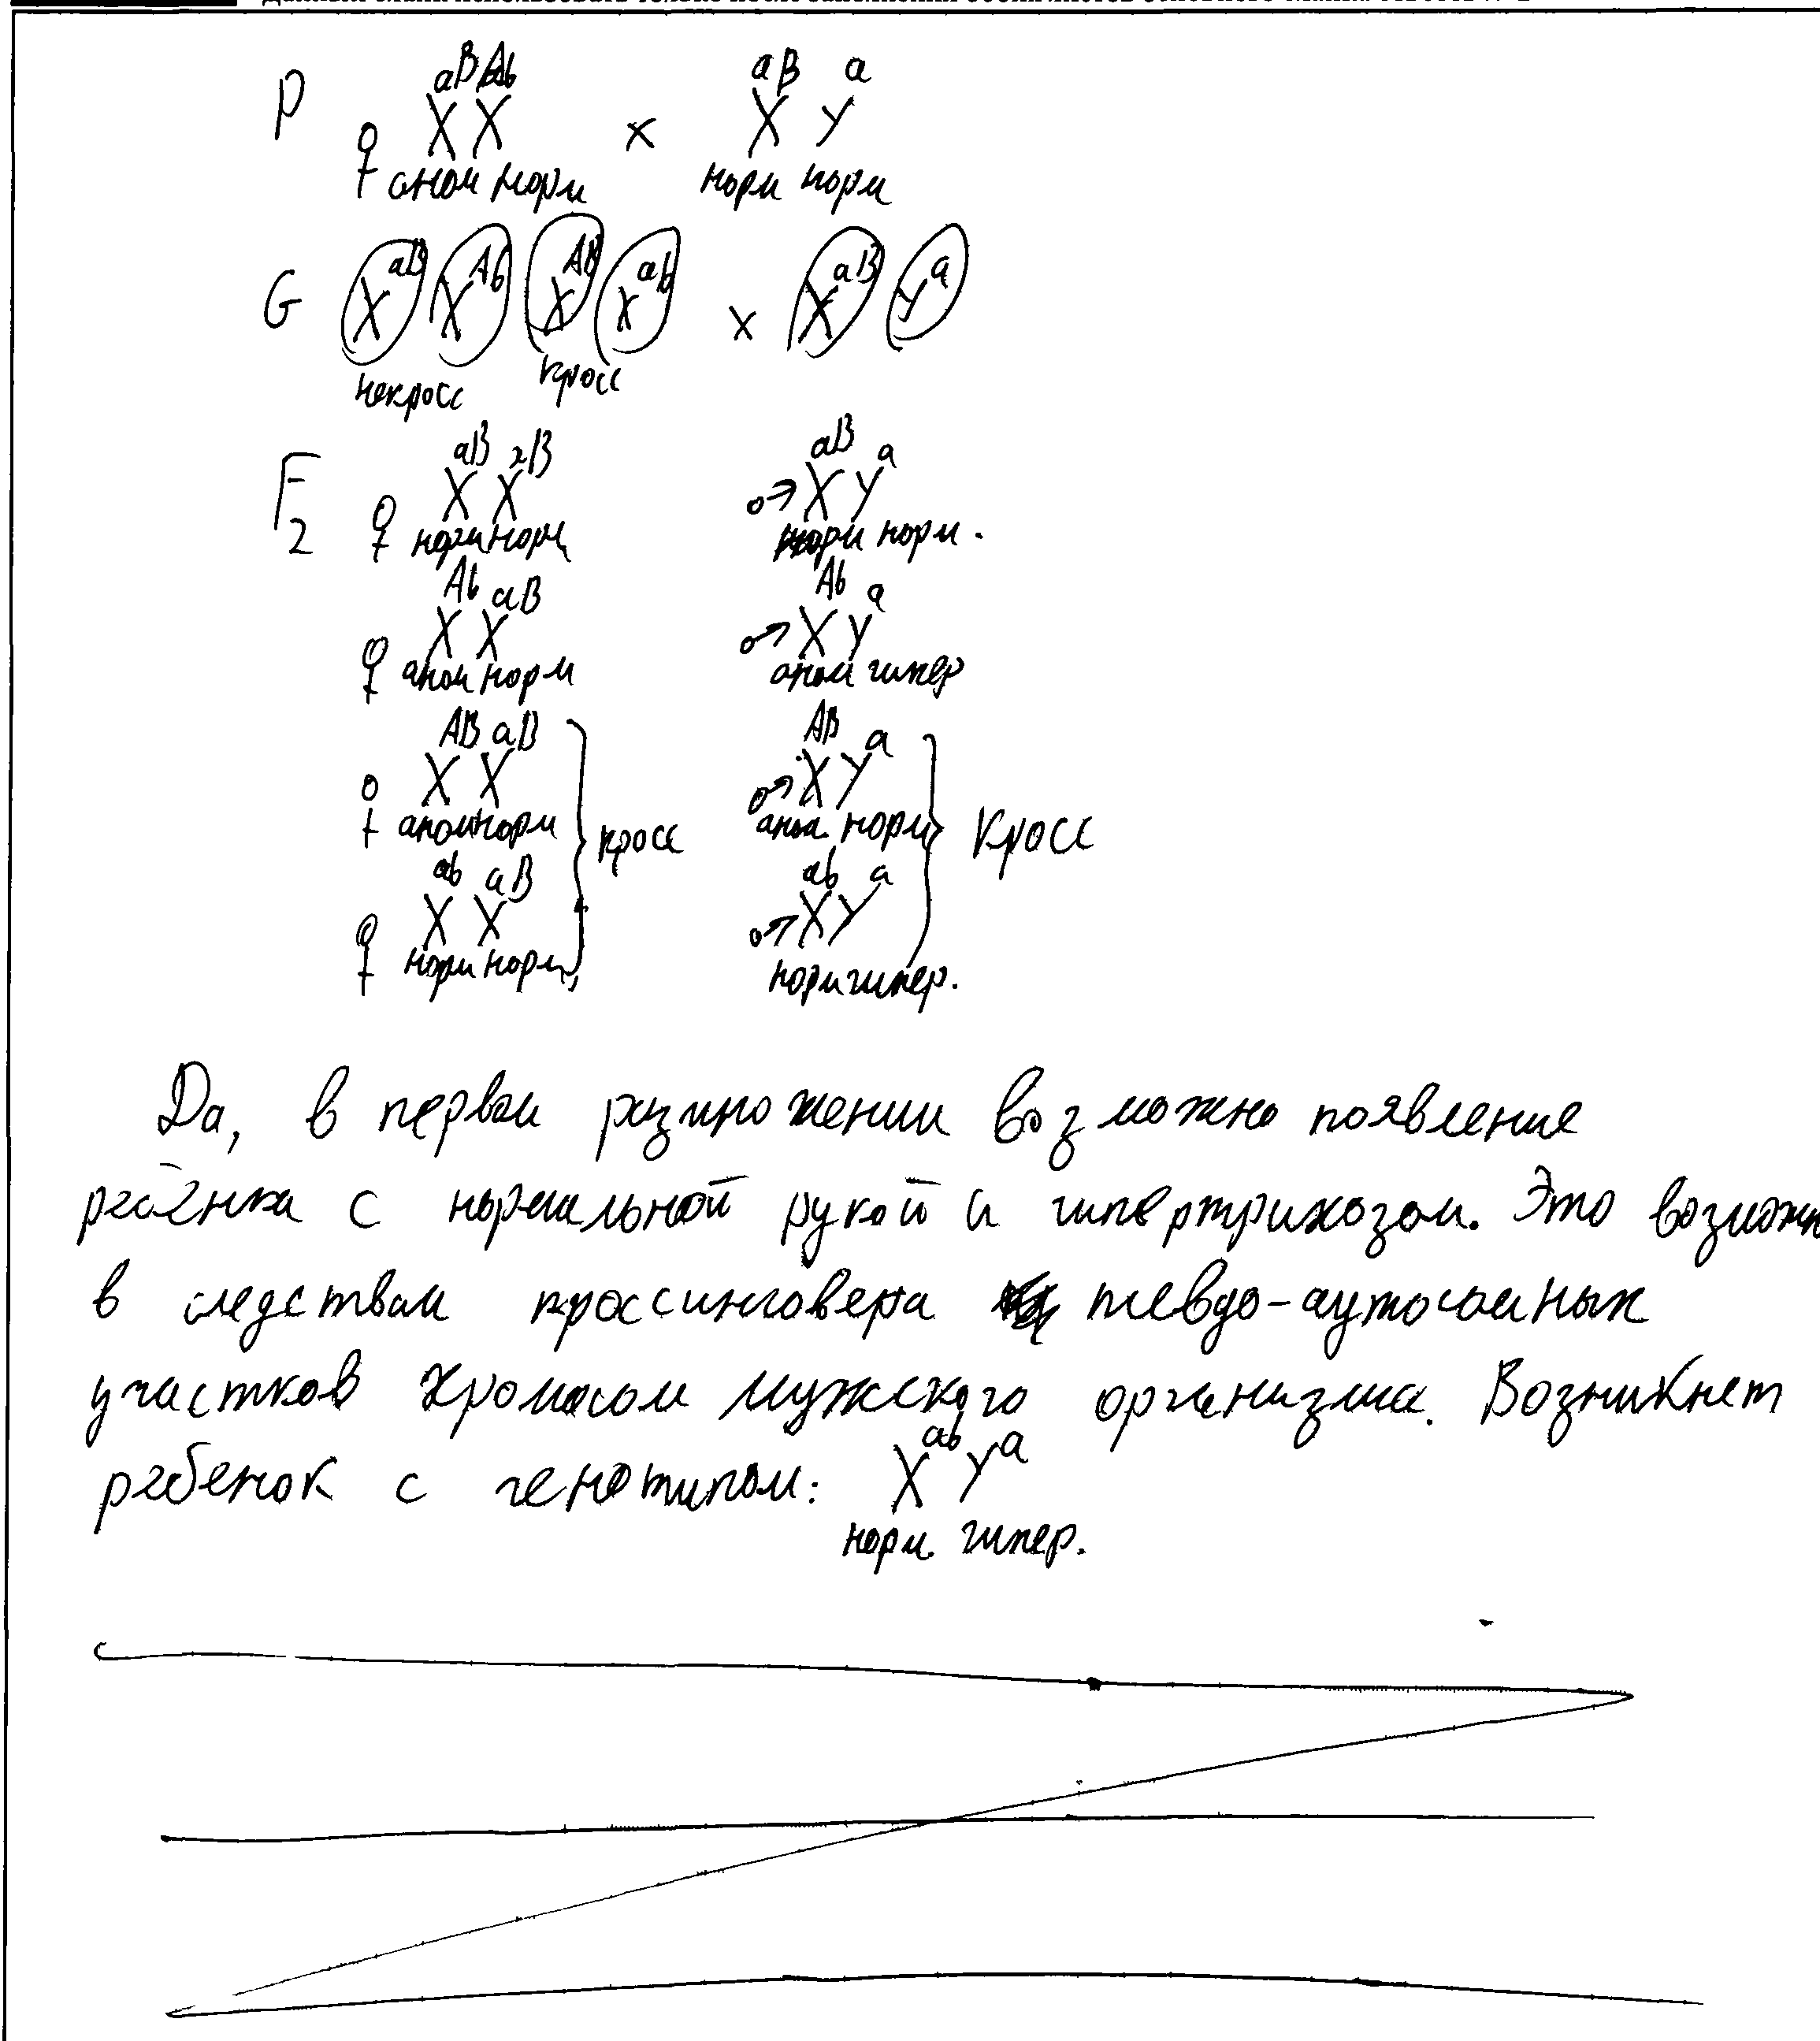 P ♀ X^aB X^Ab x X^aB Y^a
аном норм норм норм
G X^aB X^Ab X^AB X^ab x X^aB Y^a
некросс кросс
F2 ♀ X^aB X^aB ♂ X^aB Y^a
норм норм норм норм.
♀ X^Ab X^aB ♂ X^Ab Y^a
аном норм аном гипер
♀ X^AB X^aB ♂ X^AB Y^a
аном норм аном. норм
кросс Кросс
♀ X^ab X^aB ♂ X^ab Y^a
норм норм норм гипер.
Да, в первом размножении возможно появление
ребёнка с нормальной рукой и гипертрихозом. Это возможн
в следствам кроссинговера псевдо-аутосомных
участков хромосом мужского организма. Возникнет
ребенок с генотипом: X^ab Y^a
норм. гипер.